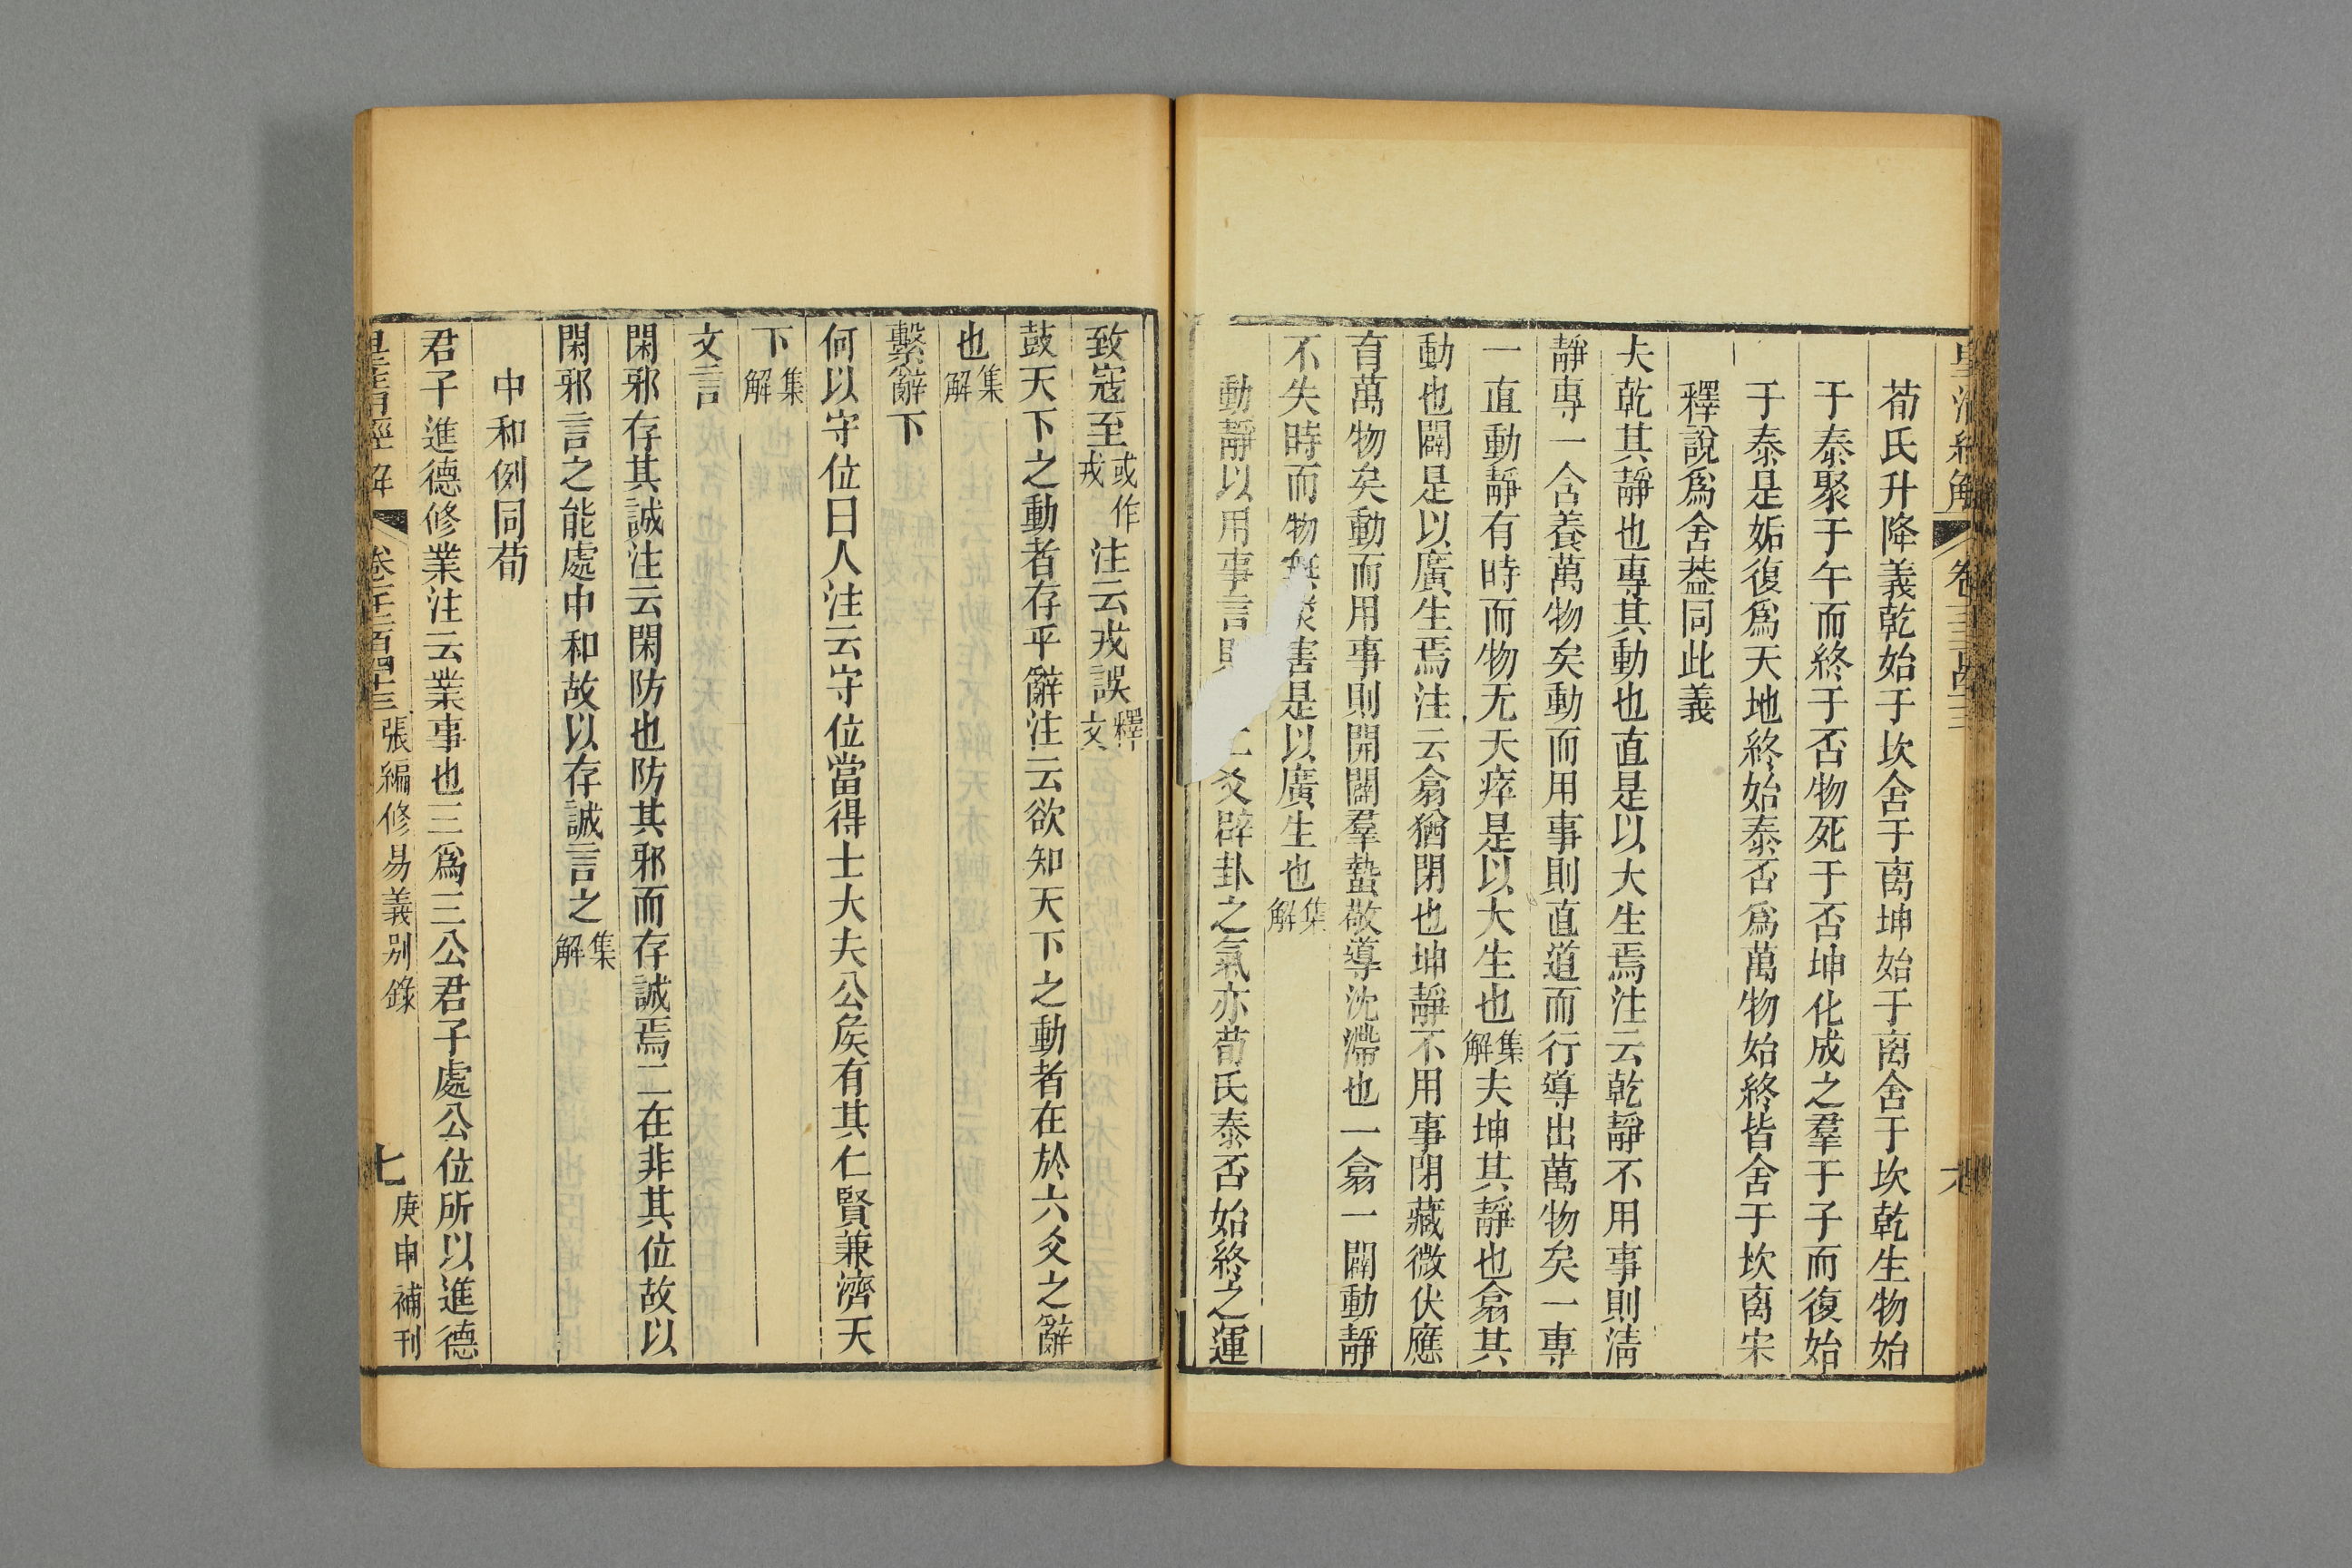 荀氏升降義乾始于坎舍于离坤始于离舍于坎乾生物始
于泰聚于午而終于否物死于否坤化成之羣于子而復始
于泰是姤復爲天地終始泰否爲萬物始終皆舍于坎离宋
釋說爲舍葢同此義
夫乾其靜也專其動也直是以大生焉注云乾靜不用事則淸
靜專一含養萬物矣動而用事則直道而行導出萬物矣一專
一直動靜有時而物无夭瘁是以大生也集解夫坤其靜也翕其
動也闢是以廣生焉注云翕猶閉也坤靜不用事閉藏微伏應
育萬物矣動而用事則開闢羣蟄敬導沈滯也一翕一闢動靜
不失時而物無災害是以廣生也集解
動靜以用事言則爻辟卦之氣亦荀氏泰否始終之運
致寇至或作戎注云戎誤釋文
鼓天下之動者存乎辭注云欲知天下之動者在於六爻之辭
也集解
繫辭下
何以守位曰人注云守位當得士大夫公矦有其仁賢兼濟天
下集解
文言
閑邪存其誠注云閑防也防其邪而存誠焉二在非其位故以
閑邪言之能處中和故以存誠言之集解
中和例同荀
君子進德修業注云業事也三爲三公君子處公位所以進德
皇淸經解 卷千二百四十三 張編修易義別錄 七 庚申補刊